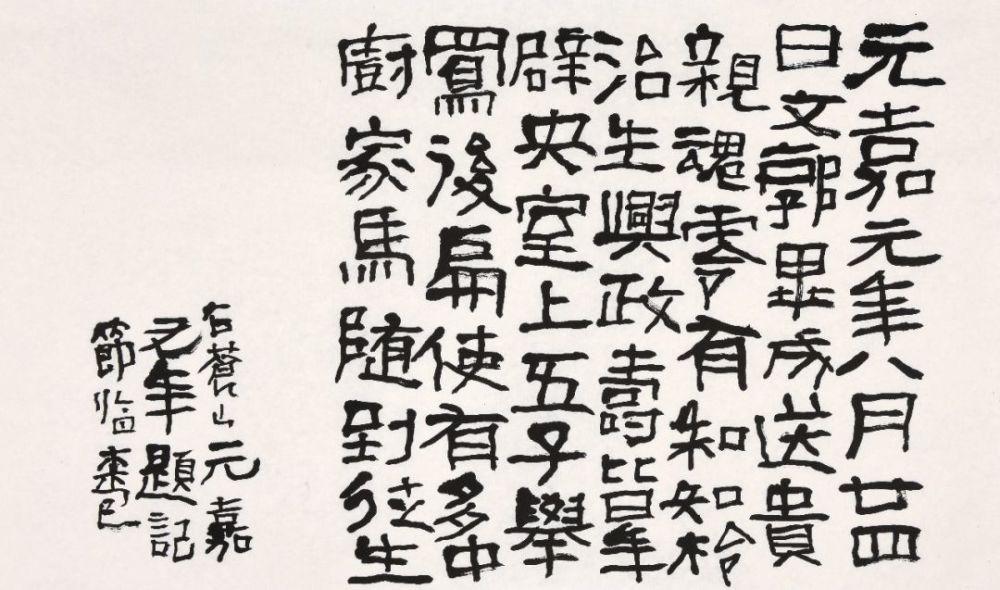 元嘉元年八月廿四
日文郭畢成送貴
親魂零有知
治生興政壽皆年
辟央室上五子舉
後扁使有多中
廚家馬隨到徒生
右蒼山元嘉
年題記
節臨